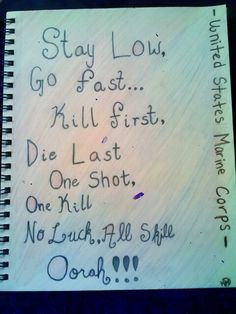 Stay Low,
Go fast...
Kill first,
Die Last
One Shot,
One Kill
No Luck, All Skill
Oorah!!!
- United States Marine Corps -